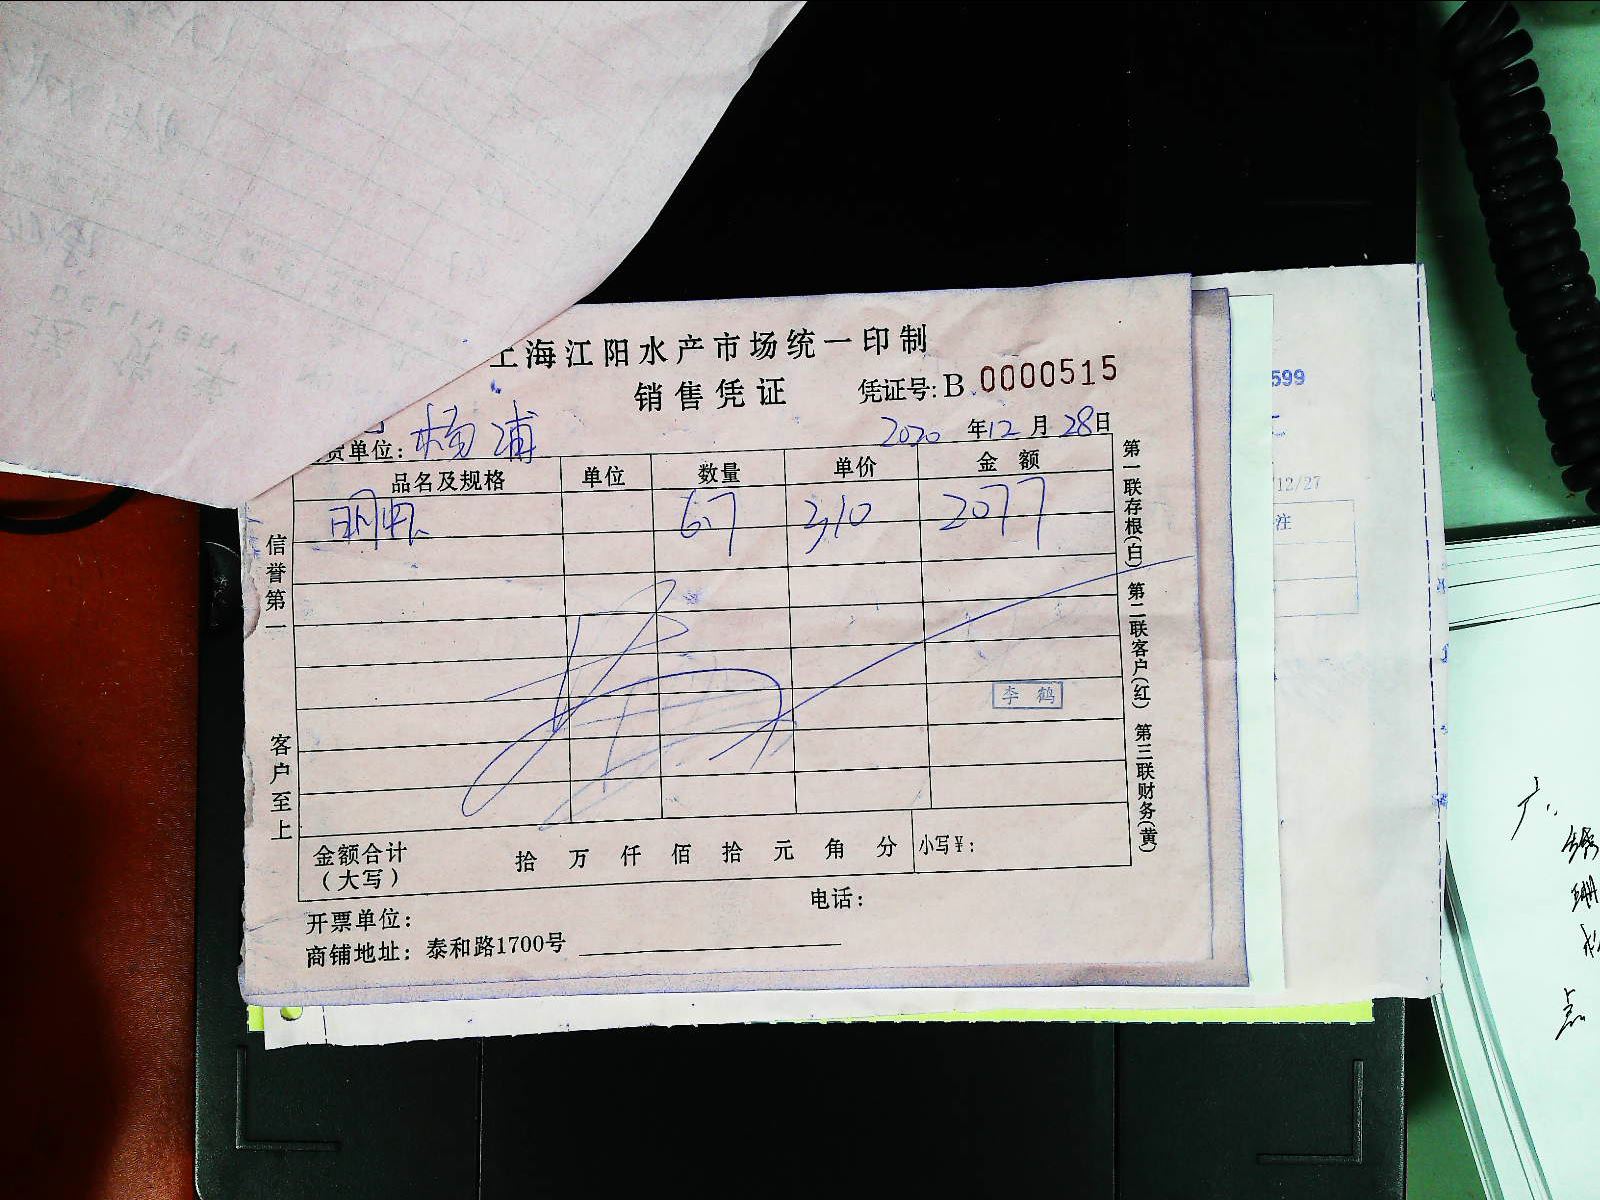 上海江阳水产市场统一印制
销售凭证 凭证号: B 0000515
货单位: 杨浦 2020 年 12 月 28 日
品名及规格 单位 数量 单价 金额
明虾 6.7 310 2077
信誉第一
客户至上
李鹤
第一联存根(白) 第二联客户(红) 第三联财务(黄)
金额合计(大写) 拾 万 仟 佰 拾 元 角 分 小写¥:
电话:
开票单位:
商铺地址: 泰和路1700号
599
12/27
注
点